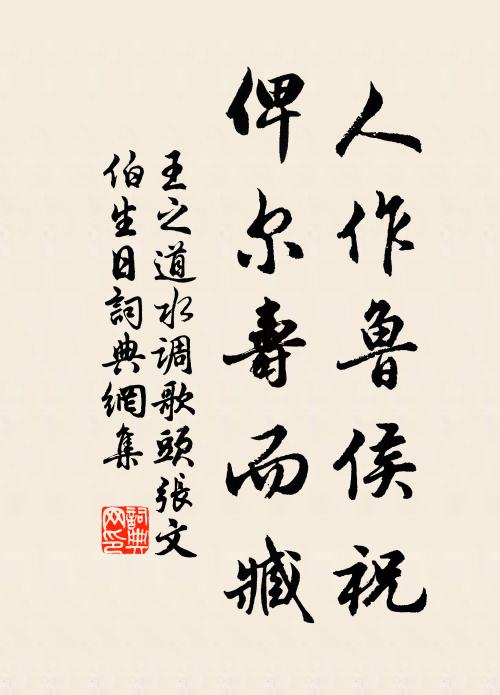 人作鲁侯祝
俾尔壽而臧
王之道水调歌頭張文
伯生日詞典網集
詞典
网印